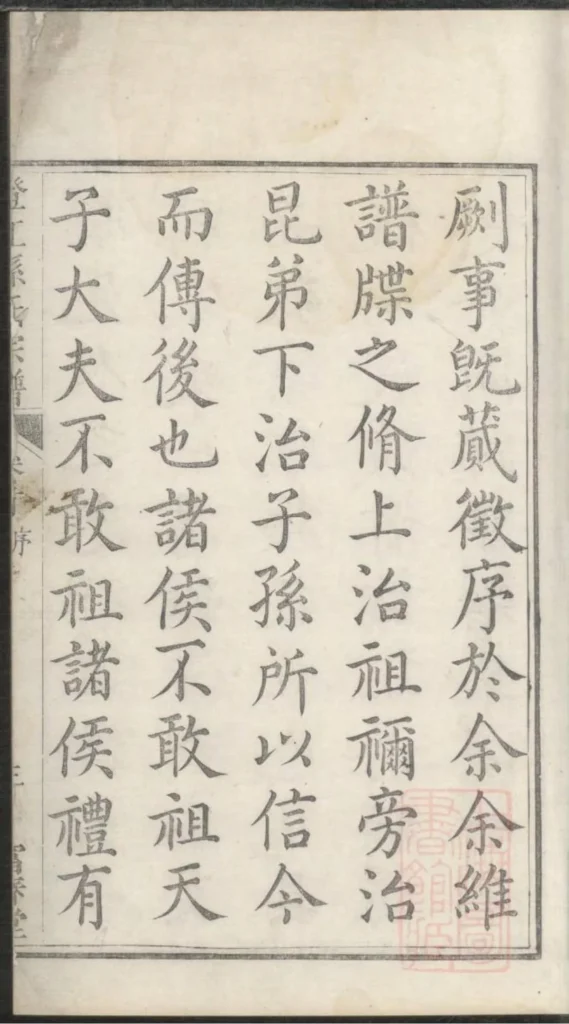 劂事既蕆徵序於余余維
譜牒之脩上治祖禰旁治
昆弟下治子孫所以信今
而傳後也諸侯不敢祖天
子大夫不敢祖諸侯禮有
孫氏宗譜
序